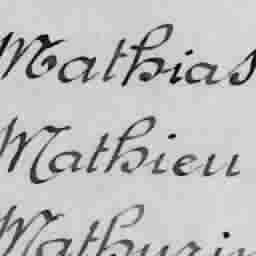 Mathias
Mathieu
Mathurin